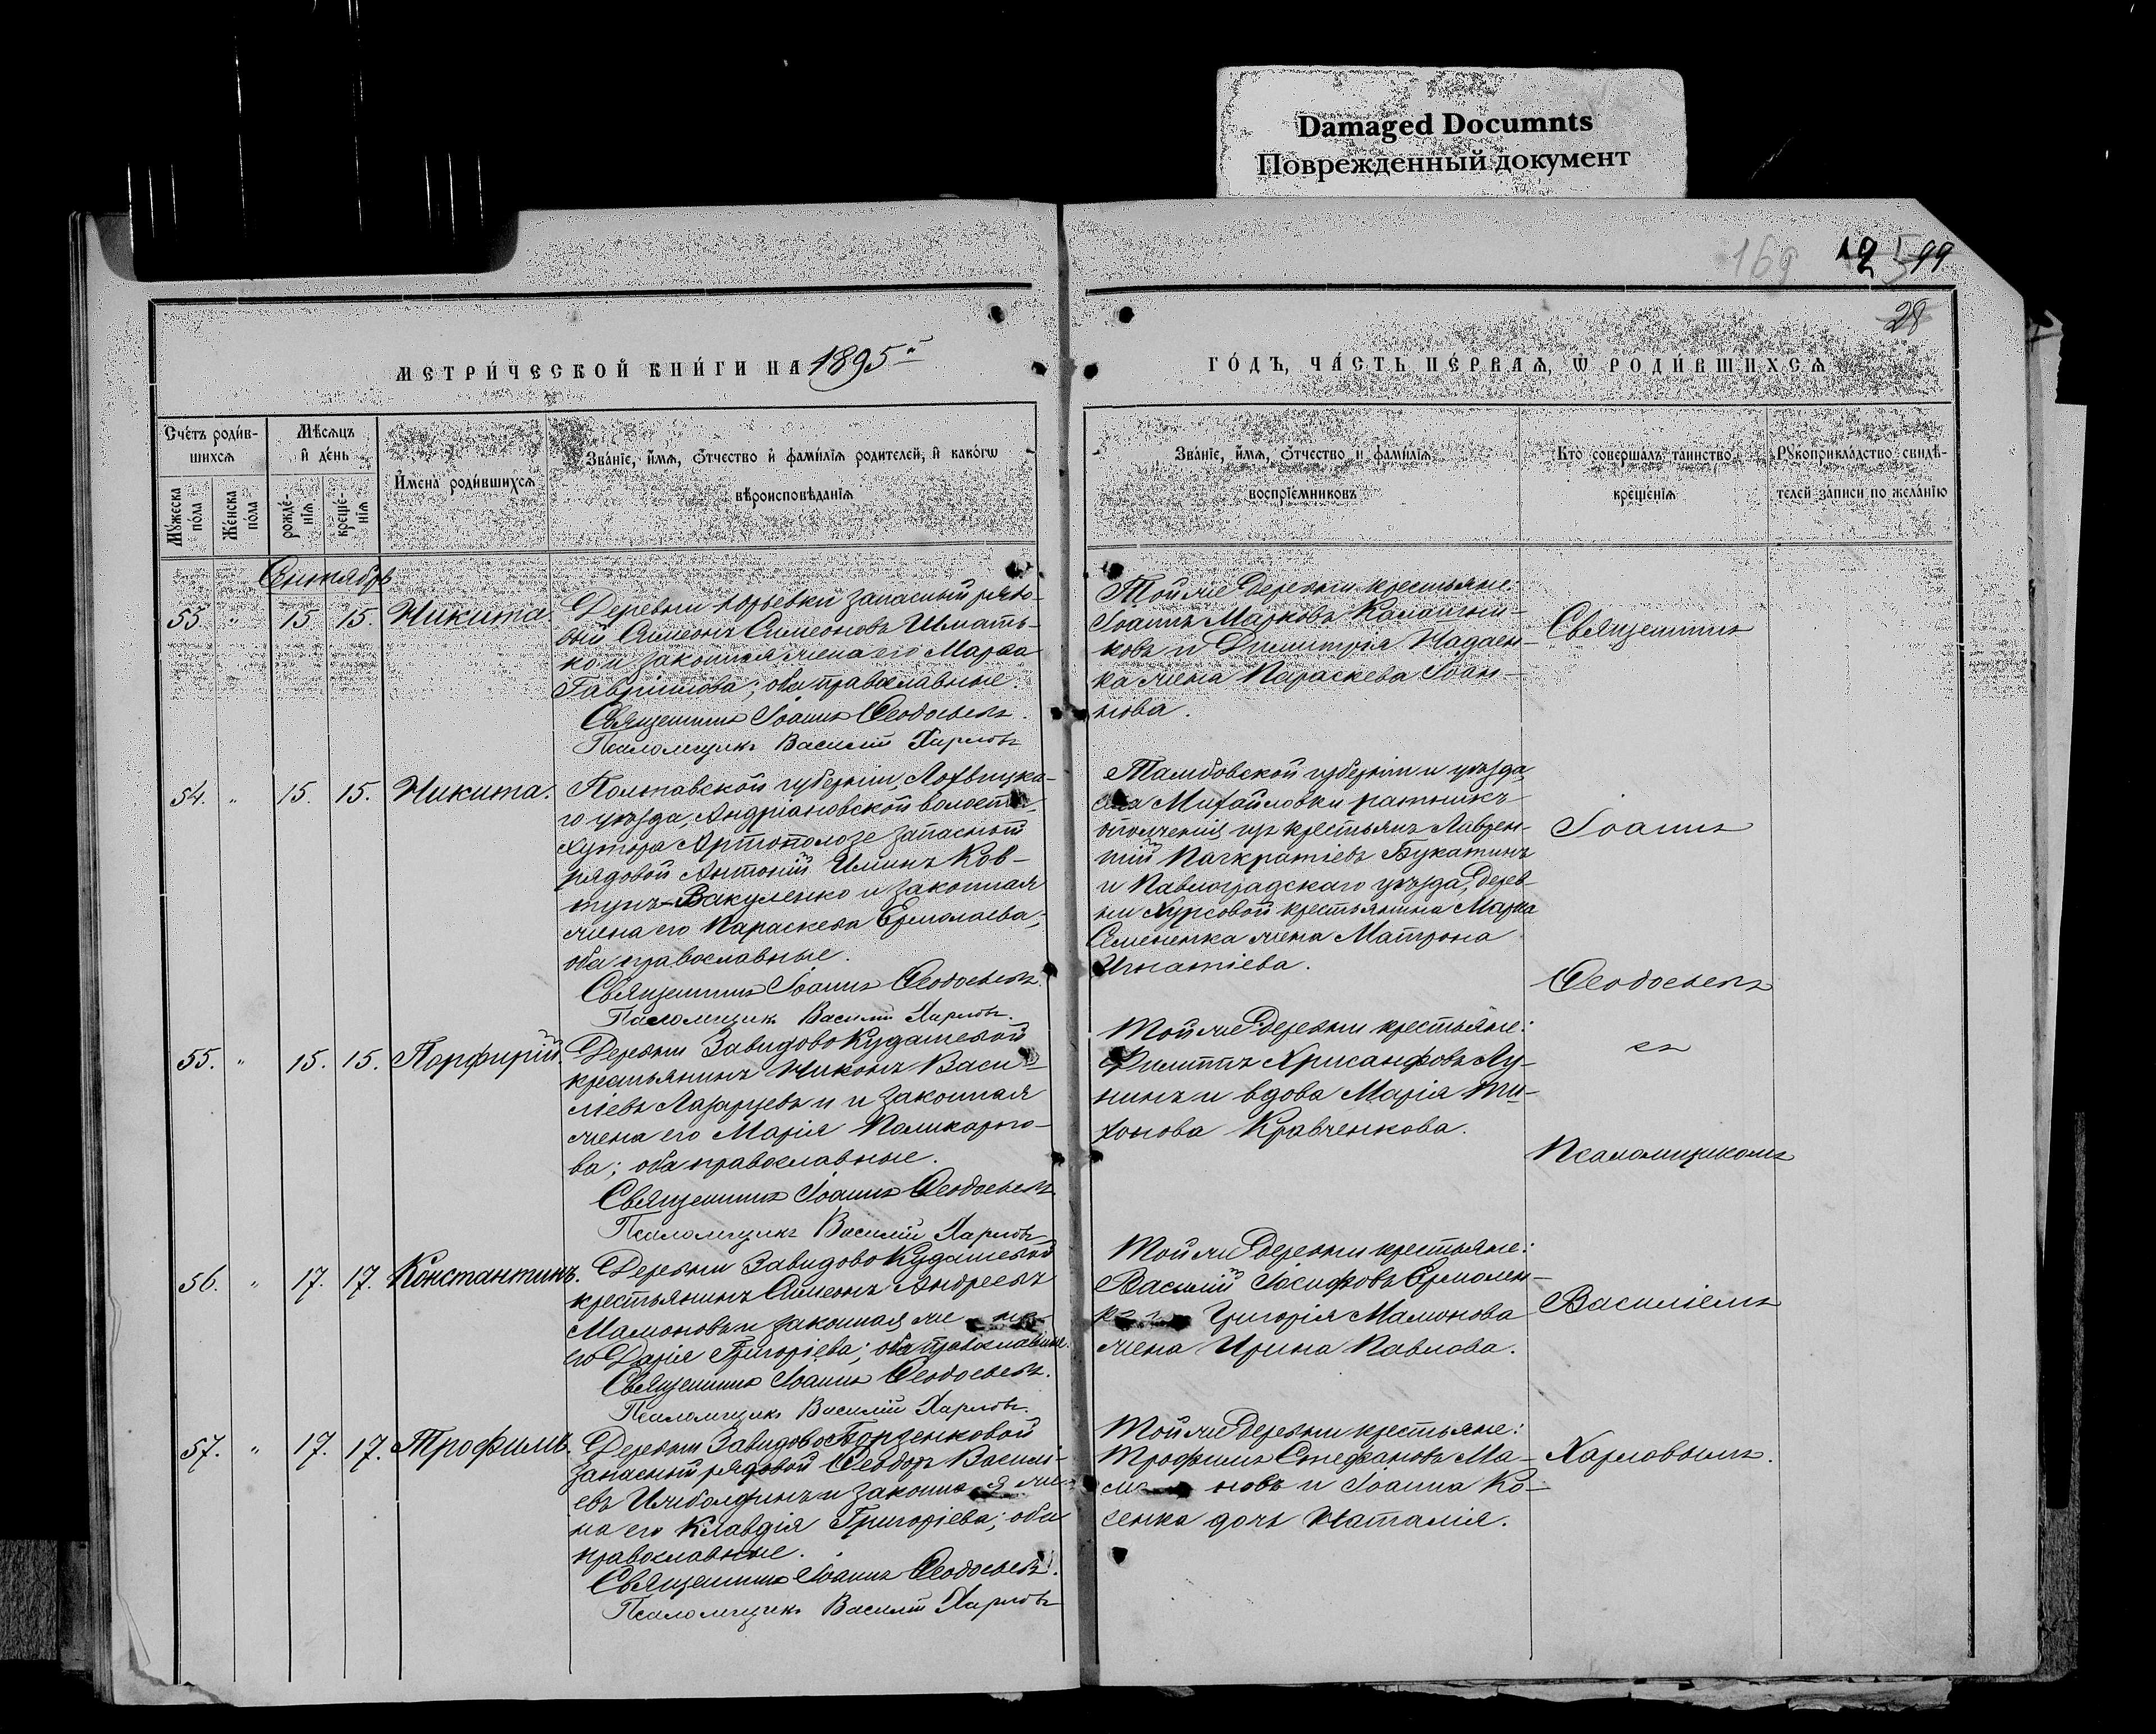 Damaged Documnts
Поврежденный документ
169 19 5 99
28
МЕТРИ́ЧЕСКОЙ КНИ́ГИ НА 1895й
ГО́ДЪ, ЧА́СТЬ ПЕ́РВАѦ, Ѡ҆ РОДИ́ВШИХСѦ
Сче́тъ роди́в-
шихсѧ
Мѣ́сѧцъ
и҆ де́нь
Мꙋ́жеска
по́ла
Же́нска
по́ла
рожде́-
нїѧ
креще́-
нїѧ
И҆мена̀ роди́вшихсѧ
Зва́нїе, и҆́мѧ, ѻ҆́тчество и҆ фами́лїѧ родителей, и҆ како́гѡ
вѣроисповѣ́данїѧ
Зва́нїе, и҆́мѧ, ѻ҆́тчество и҆ фами́лїѧ
воспрїе́мниковъ
Кто̀ соверша́лъ та́инство
креще́нїѧ
Рꙋкоприкла́дство свидѣ́-
телей за́писи по жела́нїю
Сентябрь
53 " 15 15. Никита.
Деревни Юрьевки запасный рядо-
вый Симеонъ Симеоновъ Шмать-
ко и законная жена его Марѳа
Гавріилова; оба православные.
Священникъ Іоаннъ Ѳеодосьевъ.
Псаломщикъ Василій Харловъ
Той же деревни крестьяне:
Іоаннъ Марковъ Калашни-
ковъ и Димитрія Надаен-
ка жена Параскева Іоан-
нова.
54. " 15. 15. Никита.
Полтавской губерніи, Лохвицка-
го уѣзда, Андріановской волости,
хутора Артополозе запасный
рядовой Антоній Илiинъ Ков-
тунъ-Вакуленко и законная
жена его Параскева Ермолаева;
оба православные.
Священникъ Іоаннъ Ѳеодосьевъ.
Псаломщикъ Василій Харловъ.
Тамбовской губерніи и уѣзда,
села Михайловки ратникъ
ополченія изъ крестьянъ Лаврен-
тій Панкратіевъ Букатинъ
и Павлоградскаго уѣзда, дерев-
ни Хурсовой крестьянина Марка
Семененка жена Матрона
Игнатіева.
55. " 15. 15. Порфирій.
Деревни Завидово Кудашевой
крестьянинъ Никонъ Васи-
ліевъ Лазарцевъ и и законная
жена его Марія Поликарпо-
ва; оба православные.
Священникъ Іоаннъ Ѳеодосьевъ
Псаломщикъ Василій Харловъ
Той же деревни крестьяне:
Филиппъ Хрисанфовъ Лу-
нинъ и вдова Марія Ти-
хонова Кравченкова.
56. " 17. 17. Константинъ.
Деревни Завидово Кудашевой
крестьянинъ Симеонъ Андреевъ
Мамоновъ и законная же на
его Дарія Григоріева; оба православные.
Священникъ Іоаннъ Ѳеодосьевъ.
Псаломщикъ Василій Харловъ.
Той же деревни крестьяне:
Василій Іосифовъ Ермолен-
ко и Григорія Мамонова
жена Ирина Павлова.
57. " 17. 17. Трофимъ.
Деревни Завидово Борзенковой
запасный рядовой Ѳеодоръ Василі-
евъ и законна я же-
на его Клавдія Григоріева; оба
православные.
Священникъ Іоаннъ Ѳеодосьевъ.
Псаломщикъ Василій Харловъ
Той же деревни крестьяне:
Трофимъ Стефановъ Ма-
мо новъ и Іоанна Ко-
сенка дочь Наталія.
Священникъ
Іоаннъ
Ѳеодосьевъ
съ
Псаломщикомъ
Василіемъ
Харловымъ.